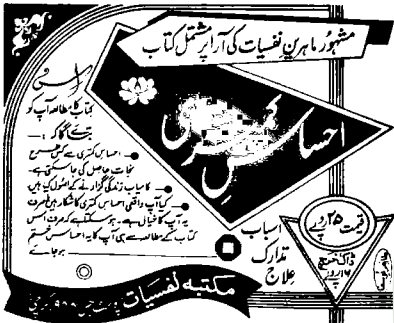 مشہور ماہرینِ نفسیات کی آرا پر مشتمل کتاب
احساسِ کمتری
اس
کتاب کا مطالعہ آپ کو
بتائے گا کہ :-
احساس کمتری سے کس طرح
نجات حاصل کی جا سکتی ہے۔
کامیاب زندگی گزارنے کے اصول کیا ہیں
کیا آپ واقعی احساس کمتری کا شکار ہیں یا صرف
یہ آپ کا خیال ہے۔ ہو سکتا ہے کہ صرف اس
کتاب کے مطالعہ سے ہی آپ کا یہ احساس ختم
ہو جائے
اسباب
تدارک
علاج
قیمت ۲۵ روپے
ڈاک خرچ
۱۶ روپے
مکتبہ نفسیات پوسٹ بکس